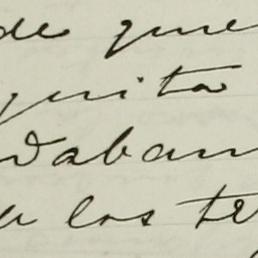 de que
quita
daban
a los te